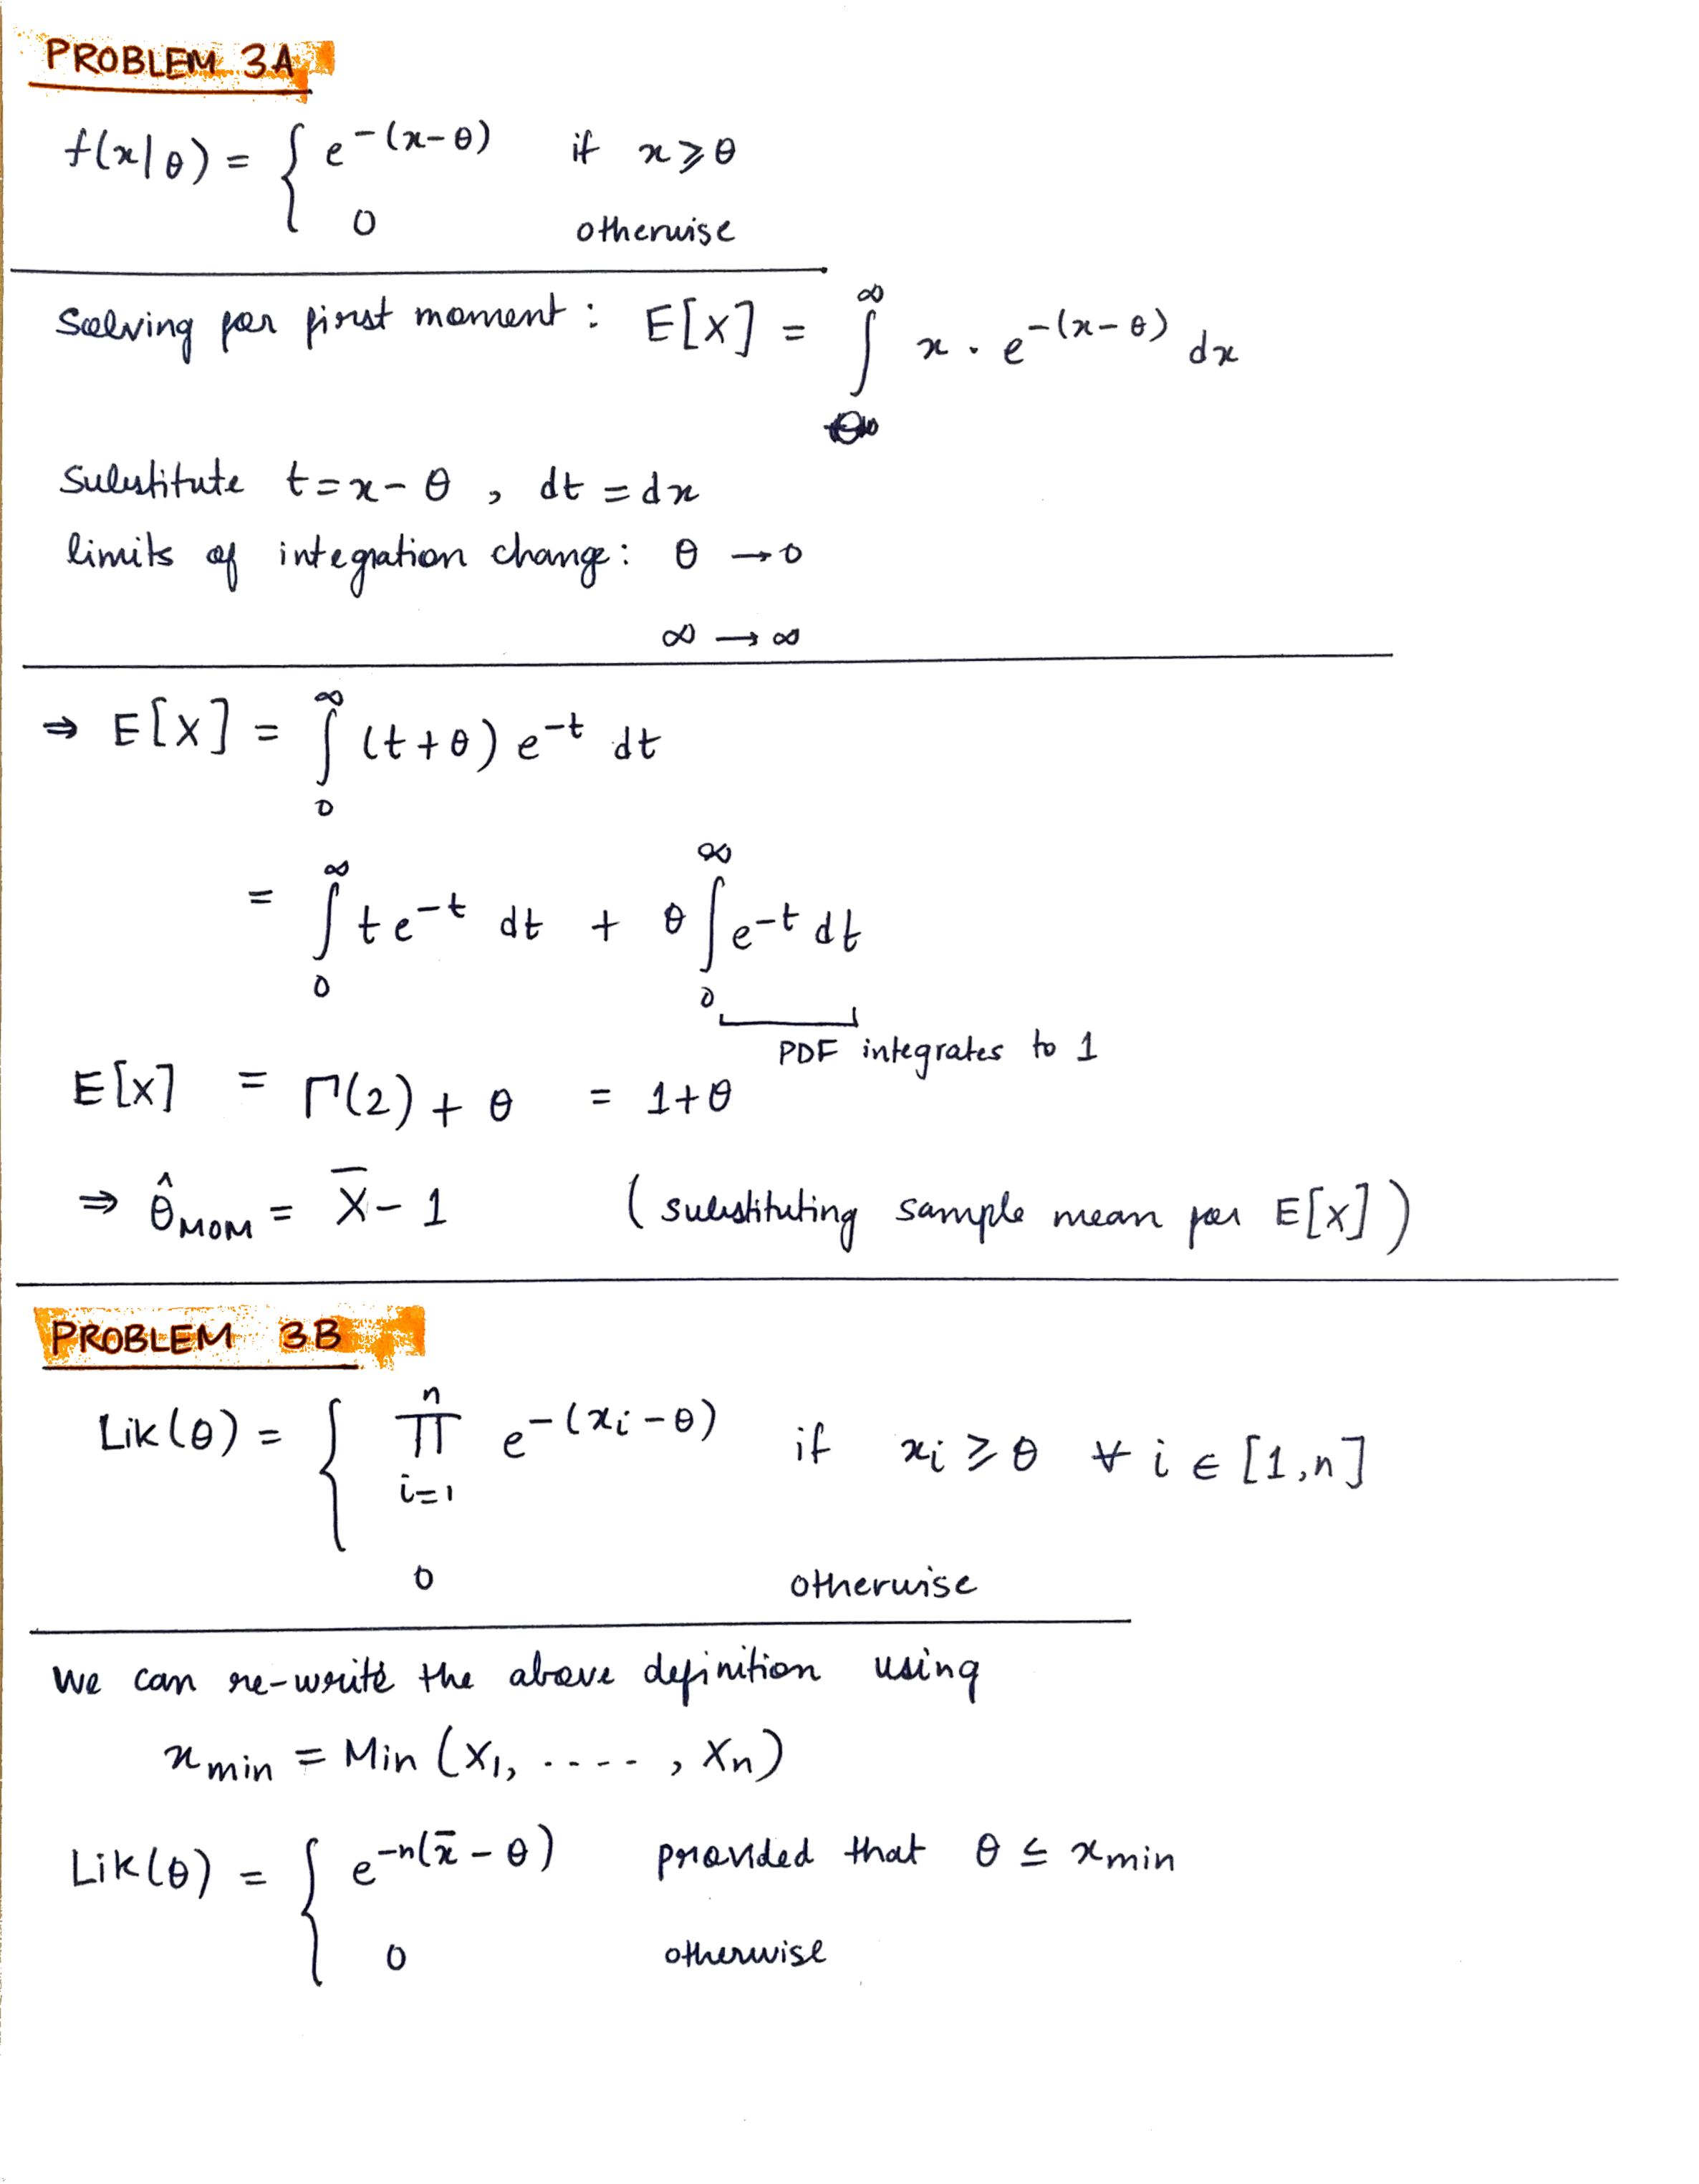 PROBLEM 3A
f(x|θ) = { e^{-(x-θ)} if x ⩾ θ
0 otherwise
Solving for first moment : E[X] = ∫_θ^∞ x . e^{-(x-θ)} dx
Substitute t = x - θ , dt = dx
limits of integration change : θ → 0
∞ → ∞
⇒ E[X] = ∫_0^∞ (t+θ) e^{-t} dt
= ∫_0^∞ t e^{-t} dt + θ ∫_0^∞ e^{-t} dt
PDF integrates to 1
E[X] = Γ(2) + θ = 1+θ
⇒ θ̂_MOM = X̄ - 1 ( substituting sample mean for E[X] )
PROBLEM 3B
Lik(θ) = { ∏_{i=1}^n e^{-(xi-θ)} if xi ⩾ θ ∀ i ∈ [1,n]
0 otherwise
We can re-write the above definition using
x_min = Min (X1, ..... , Xn)
Lik(θ) = { e^{-n(x̄-θ)} provided that θ ≤ x_min
0 otherwise